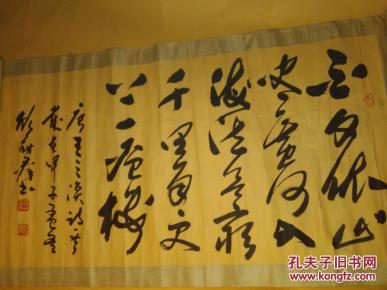 白日依山
尽黄河入
海流欲窮
千里目更
上一層楼
唐王之涣詩
歲在甲子
書
孔夫子旧书网
KONGFZ.COM